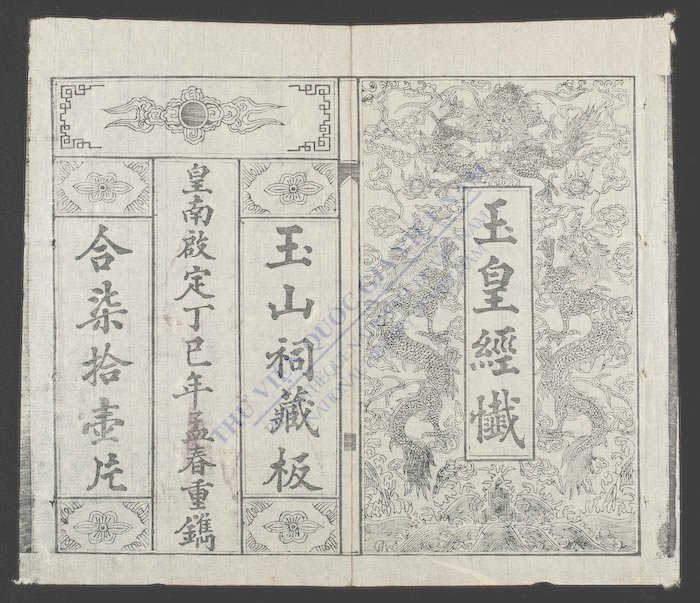 玉皇經懺
玉山祠藏板
皇南啟定丁巳年孟春重鐫
合柒拾壹片
THƯ VIỆN QUỐC GIA VIỆT NAM